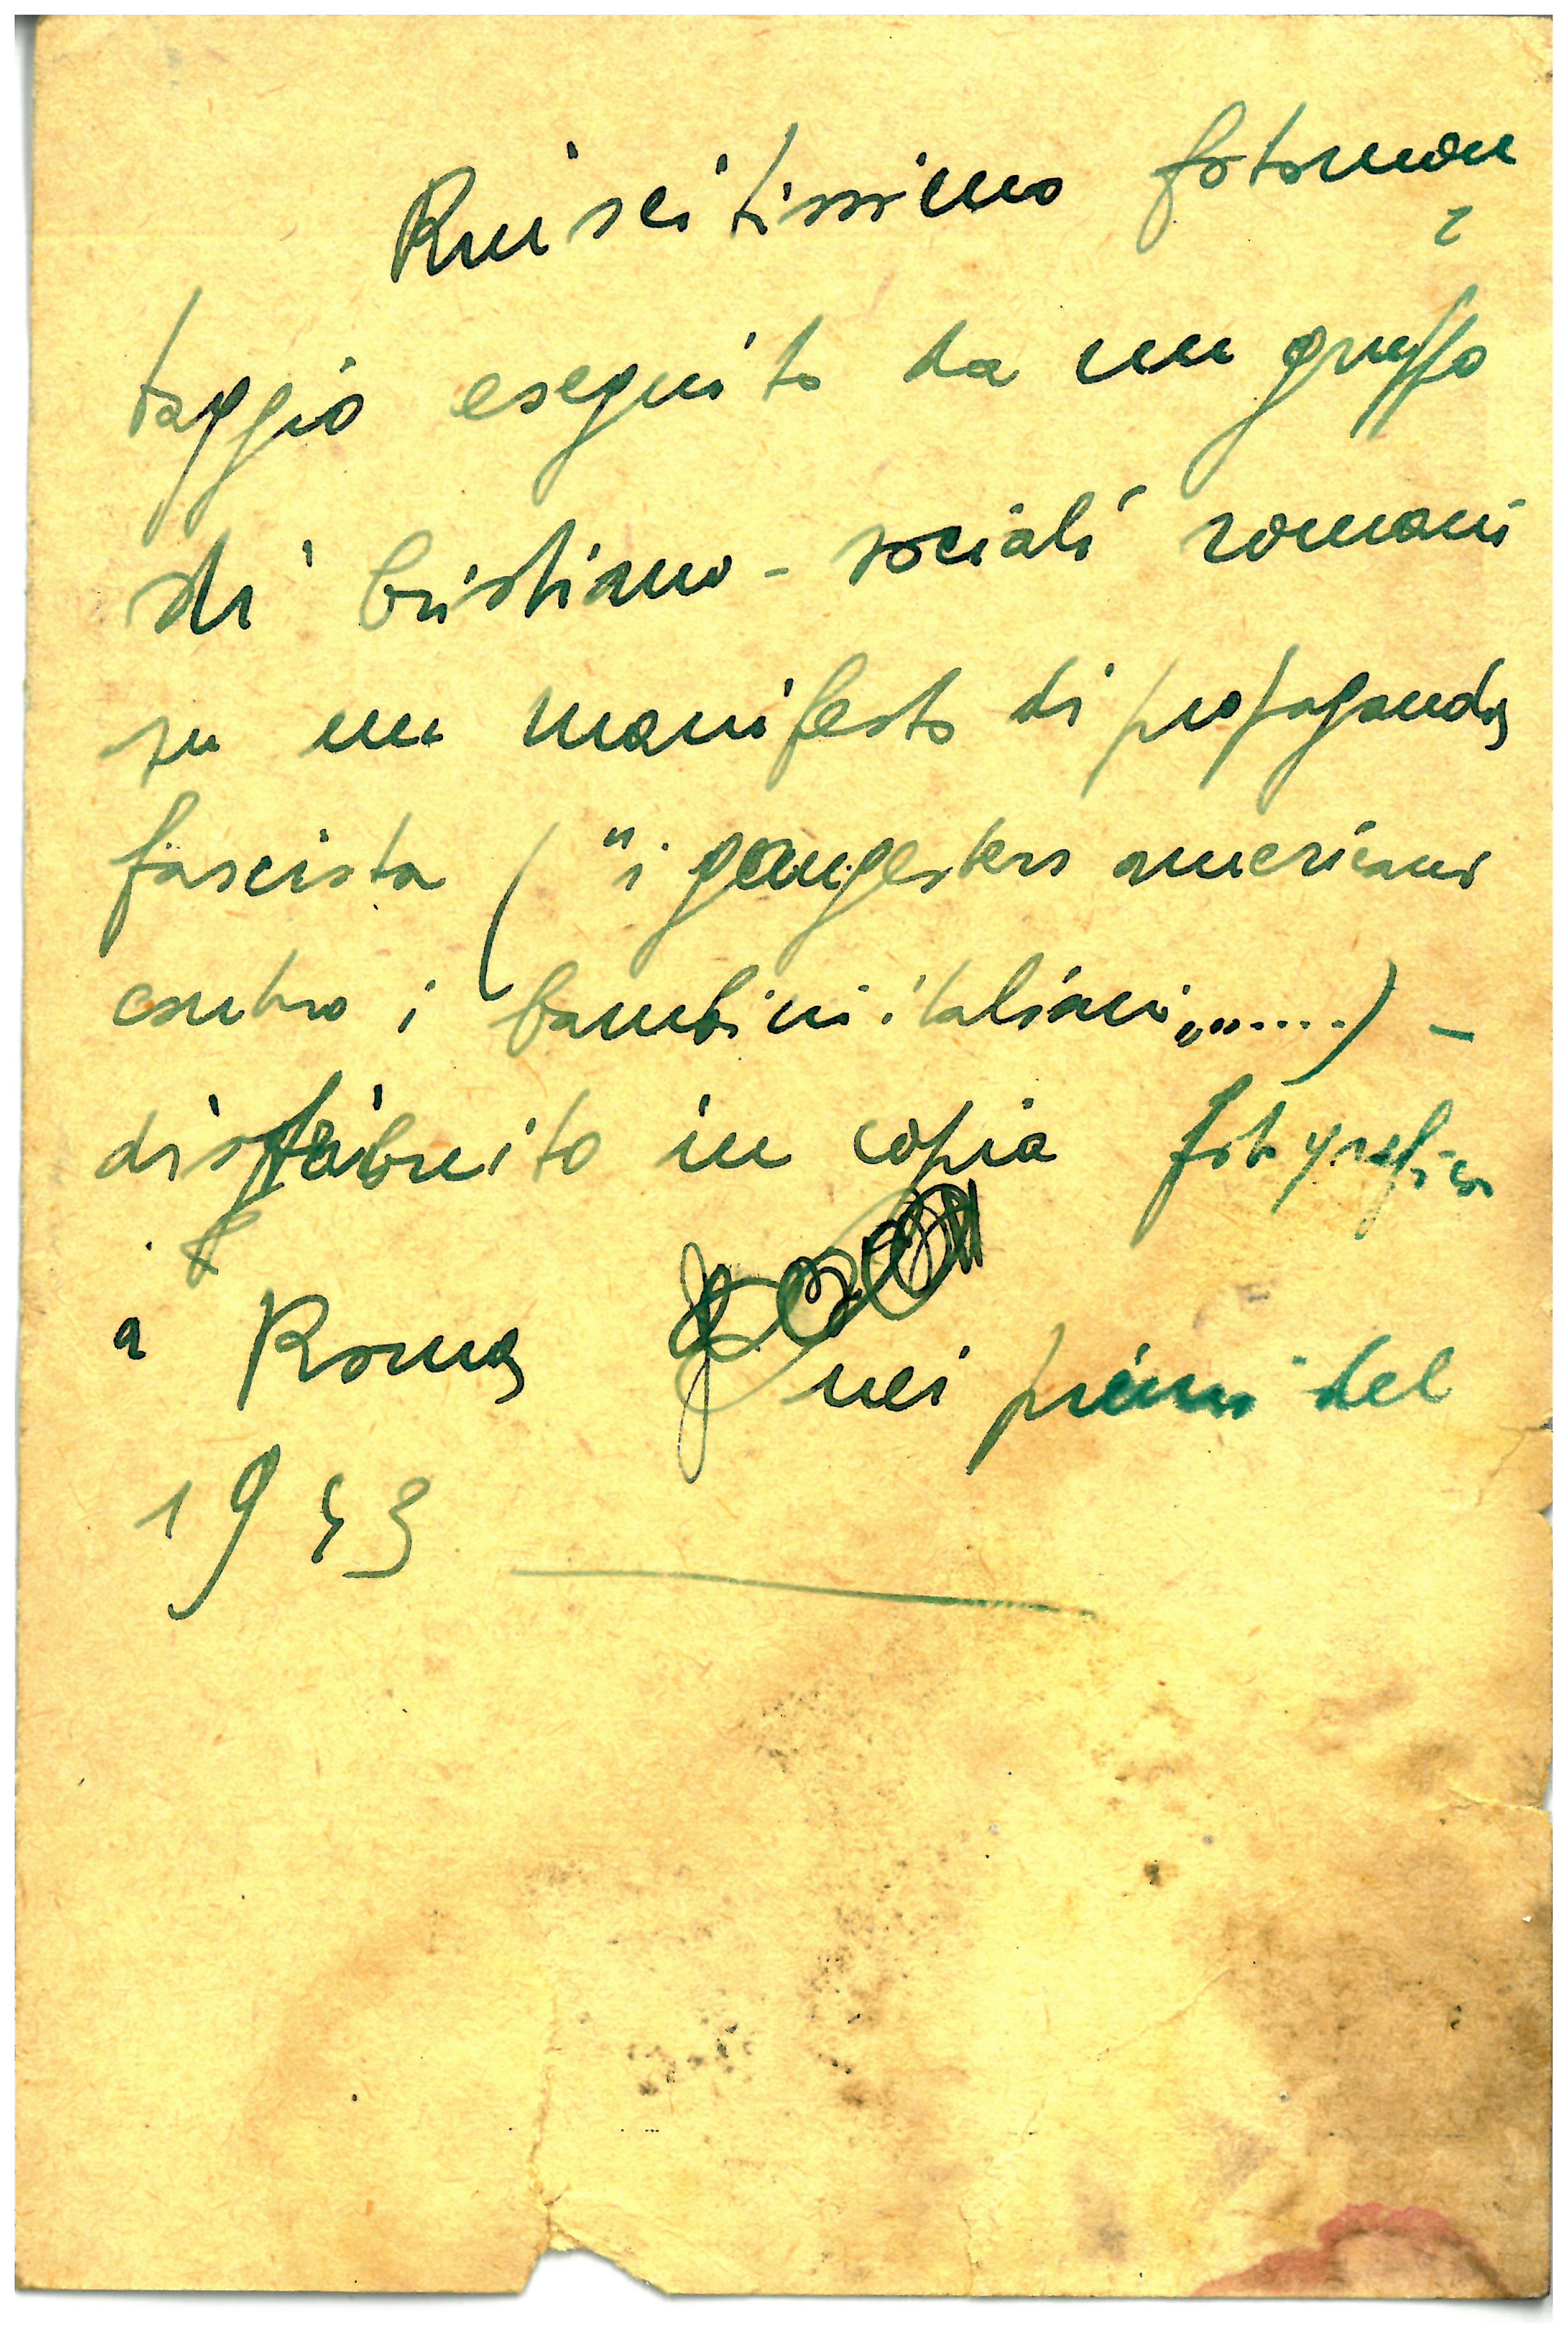 Riuscitissimo fotomon
taggio eseguito da un gruppo
di cristiano-sociali romani
su un manifesto di propaganda
fascista ("i gangesters americani
contro i bambini italiani„.....) -
distribuito in copia fotografica
a Roma nei primi del
1943